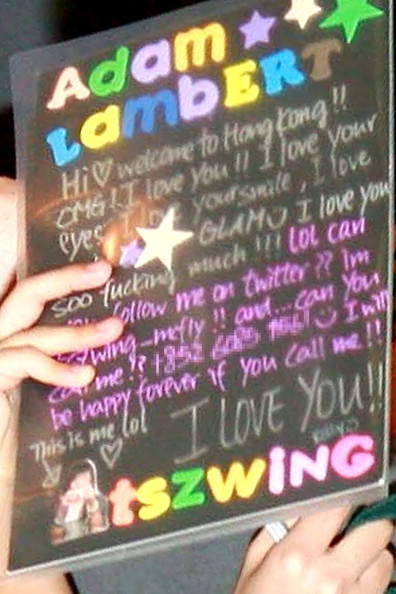 Adam
LAMBERT
Hi♡ welcome to Hong Kong!!
OMG! I love YOU!! I love your
eyes I love your smile, I love
GLAM I love you
soo fucking much!!! Lol can
you follow me on twitter?? Im
wing_mcfly!! and...can You
call me?? +852 I will
be happy forever if you call me!!
This is me lol I LOVE YOU!!
tszwiNG